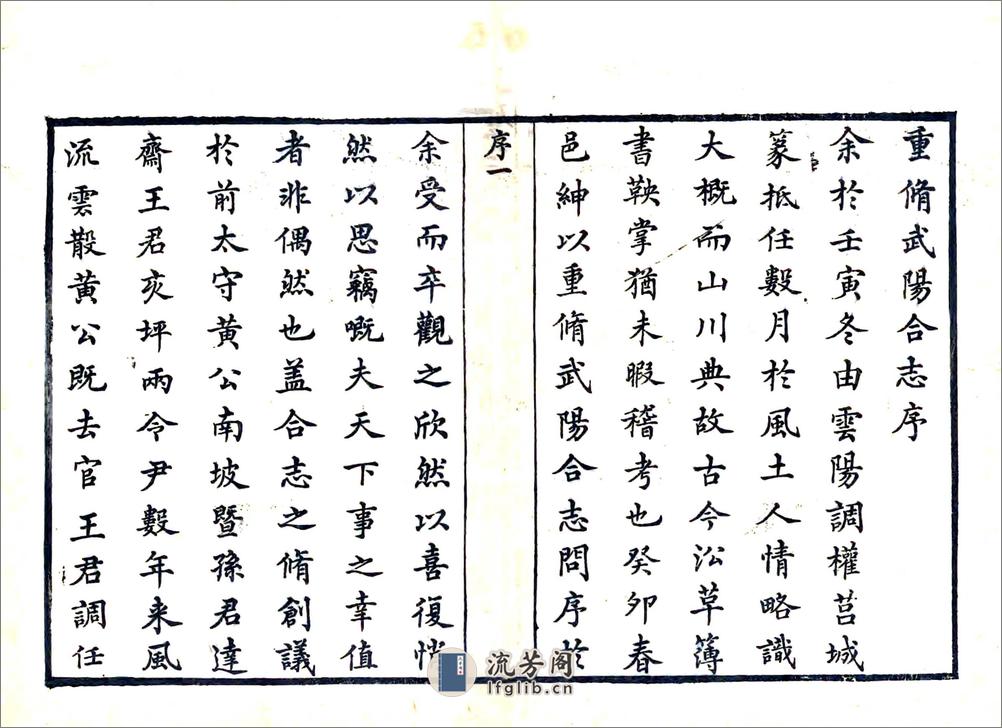 重脩武陽合志序
余於壬寅冬由雲陽調權莒城
篆抵任數月於風土人情略識
大概而山川典故古今沿革簿
書鞅掌猶未暇稽考也癸卯春
邑紳以重脩武陽合志問序於
序一
余受而卒觀之欣然以喜復愀
然以思竊嘅夫天下事之幸值
者非偶然也盖合志之脩創議
於前太守黄公南坡暨孫君達
齋王君亥坪兩令尹數年来風
流雲散黄公既去官王君調任
流芳阁
lfglib.cn